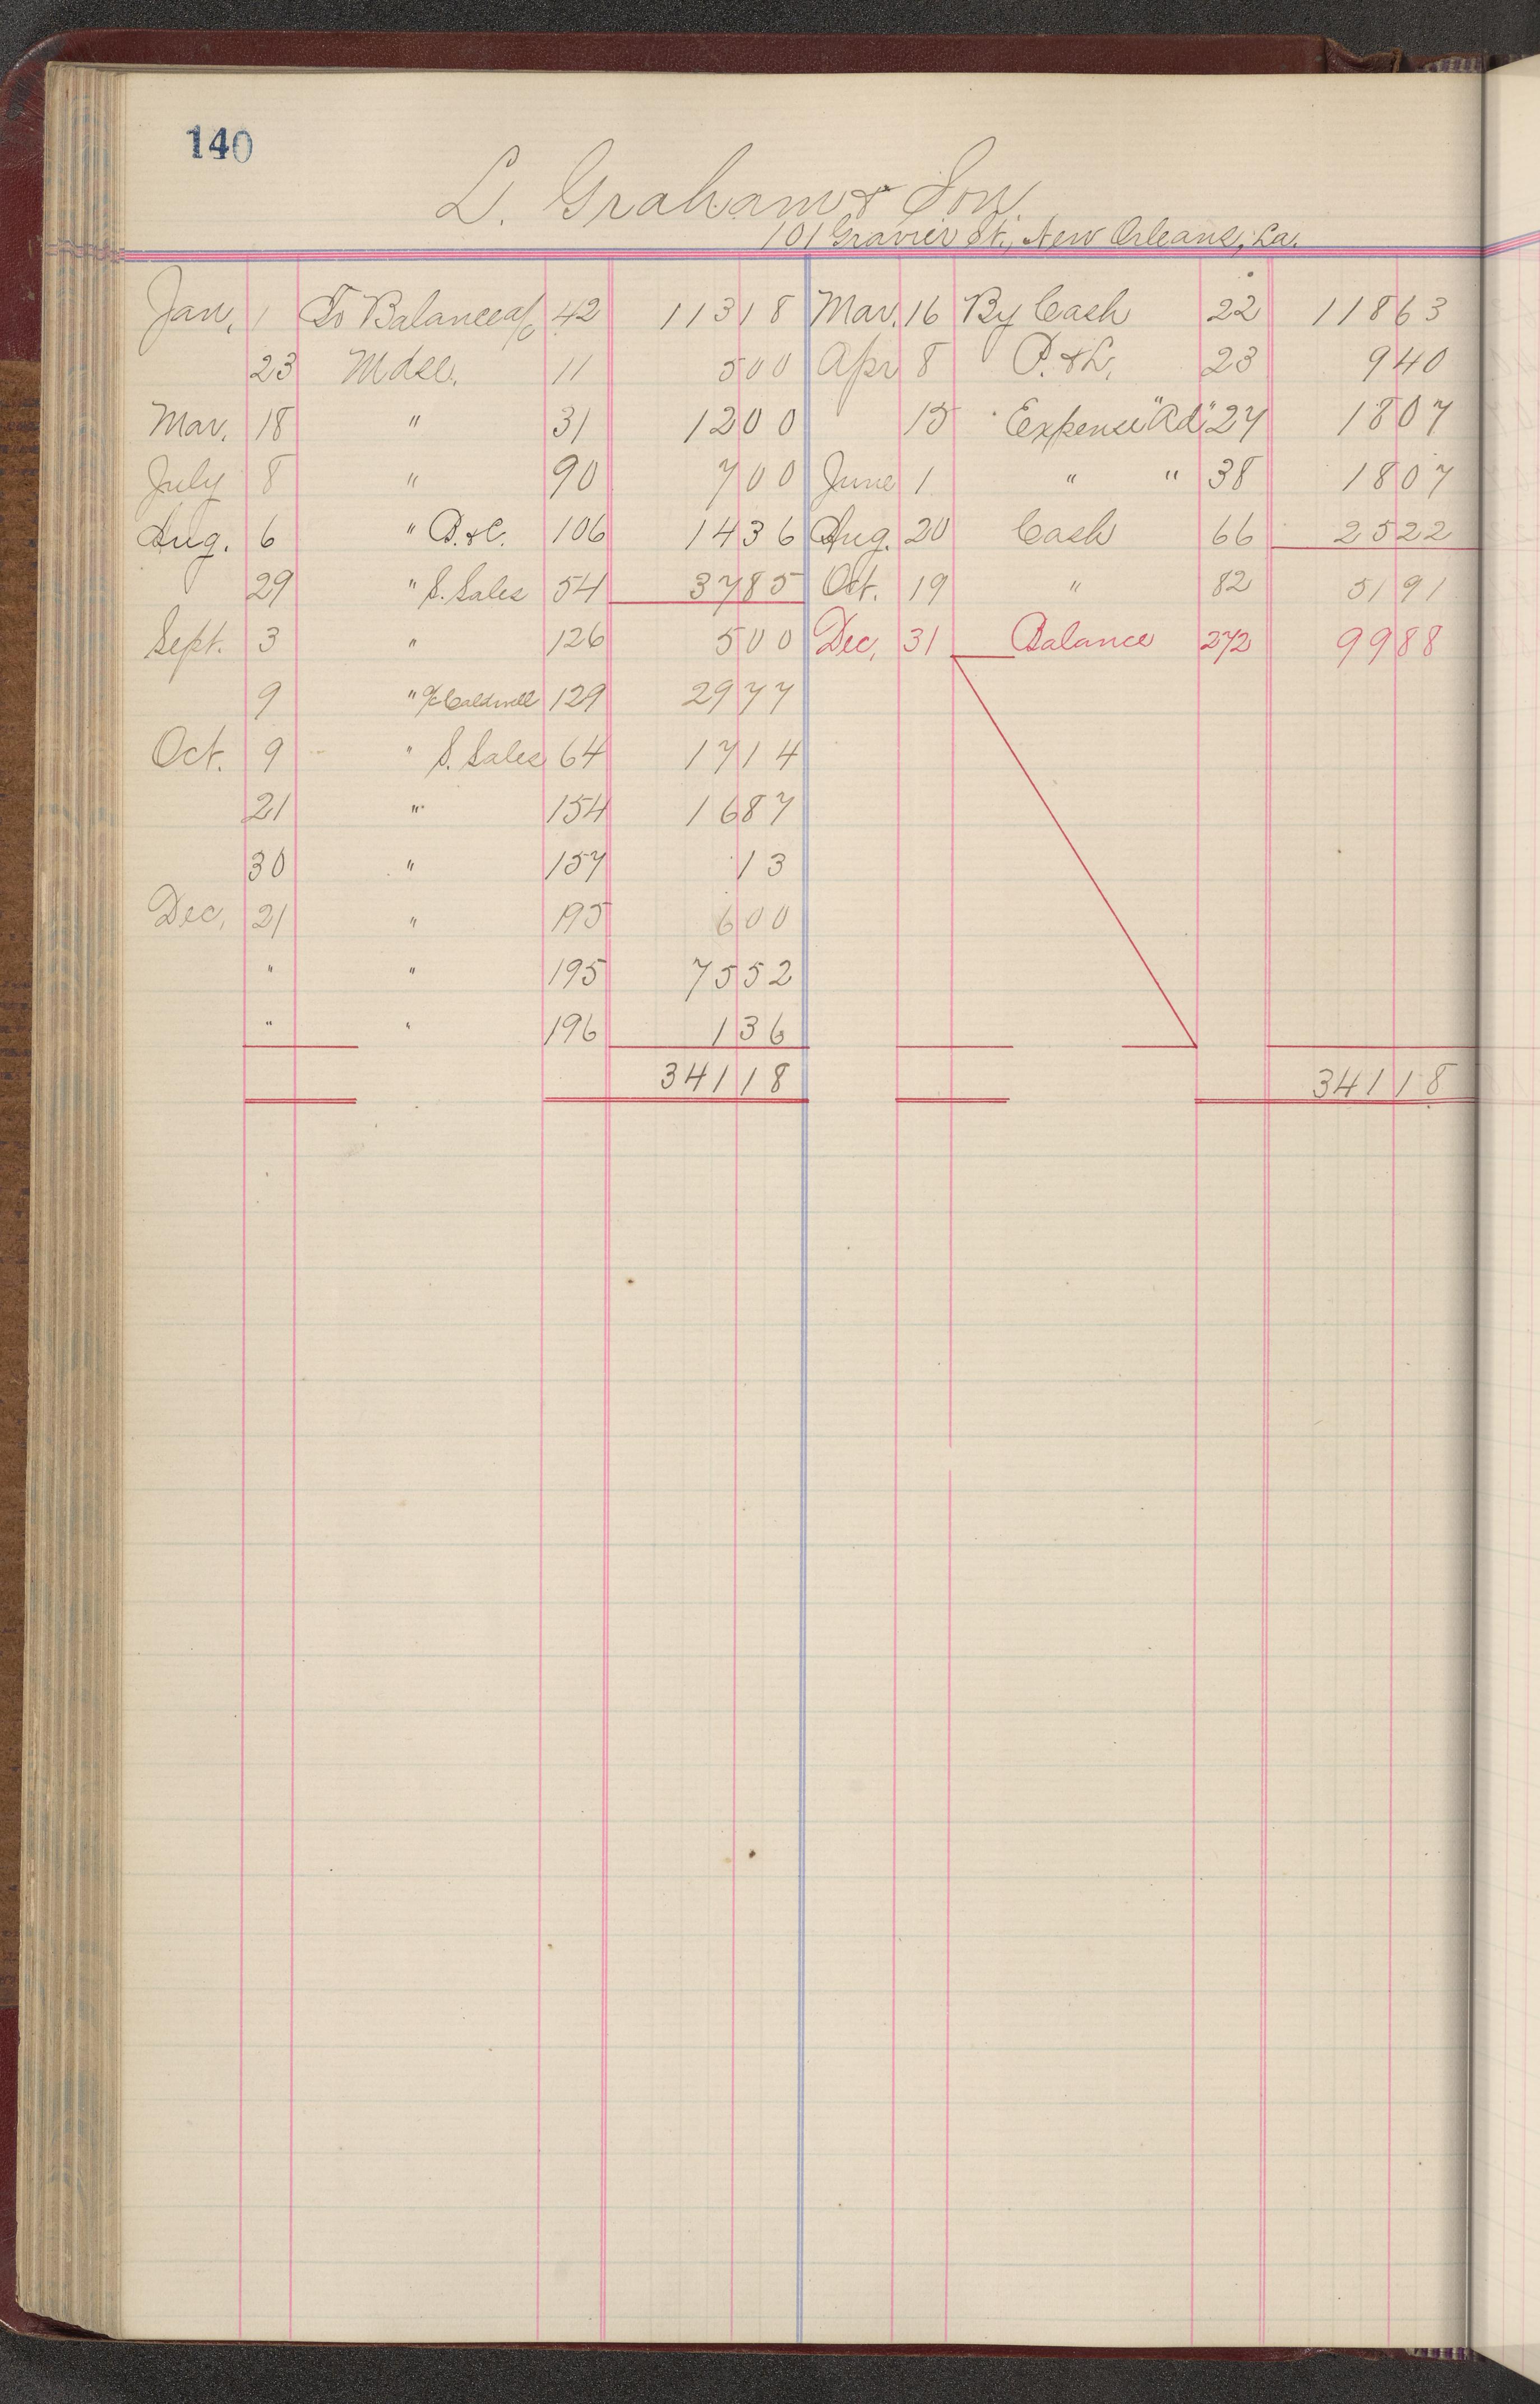 140
L. Graham & Son
101 Gravier St., New Orleans, La.
Jan. 1 To Balance a/c 42 113 18 Mar. 16 By Cash 22 118 63
23 Mdse. 11 5 00 Apr 8 P. & L. 23 9 40
Mar. 18 " 31 12 00 15 Expense "Ad" 27 18 07
July 8 " 90 7 00 June 1 " " 38 18 07
Aug. 6 " P. & C. 106 14 36 Aug. 20 Cash 66 25 22
29 " S. Sales 54 37 85 Oct. 19 " 82 51 91
Sept. 3 " 126 5 00 Dec. 31 Balance 272 99 88
9 " a/c Caldwell 129 29 77
Oct. 9 " S. Sales 64 17 14
21 " 154 16 87
30 " 157 13
Dec. 21 " 195 6 00
" " 195 75 52
" " 196 1 36
341 18 341 18